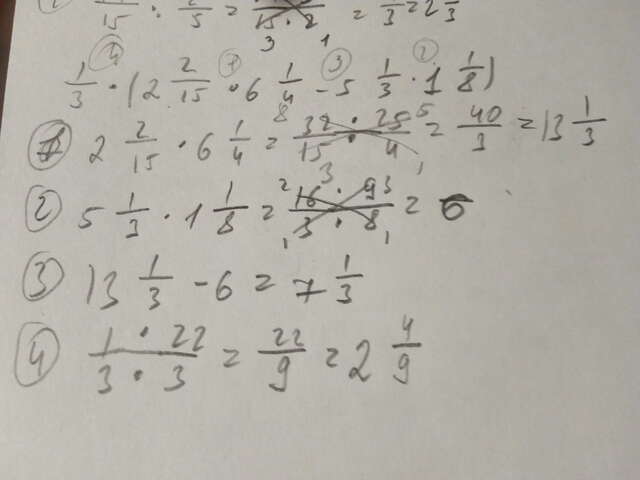 15 · 5 = 15 · 2 = 3 = 2 3
3 1
4 1 3 2
1/3 · (2 2/15 · 6 1/4 - 5 1/3 · 1 1/8)
① 2 2/15 · 6 1/4 = 8 32 · 25 5 / 3 15 · 4 1 = 40/3 = 13 1/3
② 5 1/3 · 1 1/8 = 2 16 · 9 3 / 1 3 · 8 1 = 6
③ 13 1/3 - 6 = 7 1/3
④ 1 · 22 / 3 · 3 = 22/9 = 2 4/9